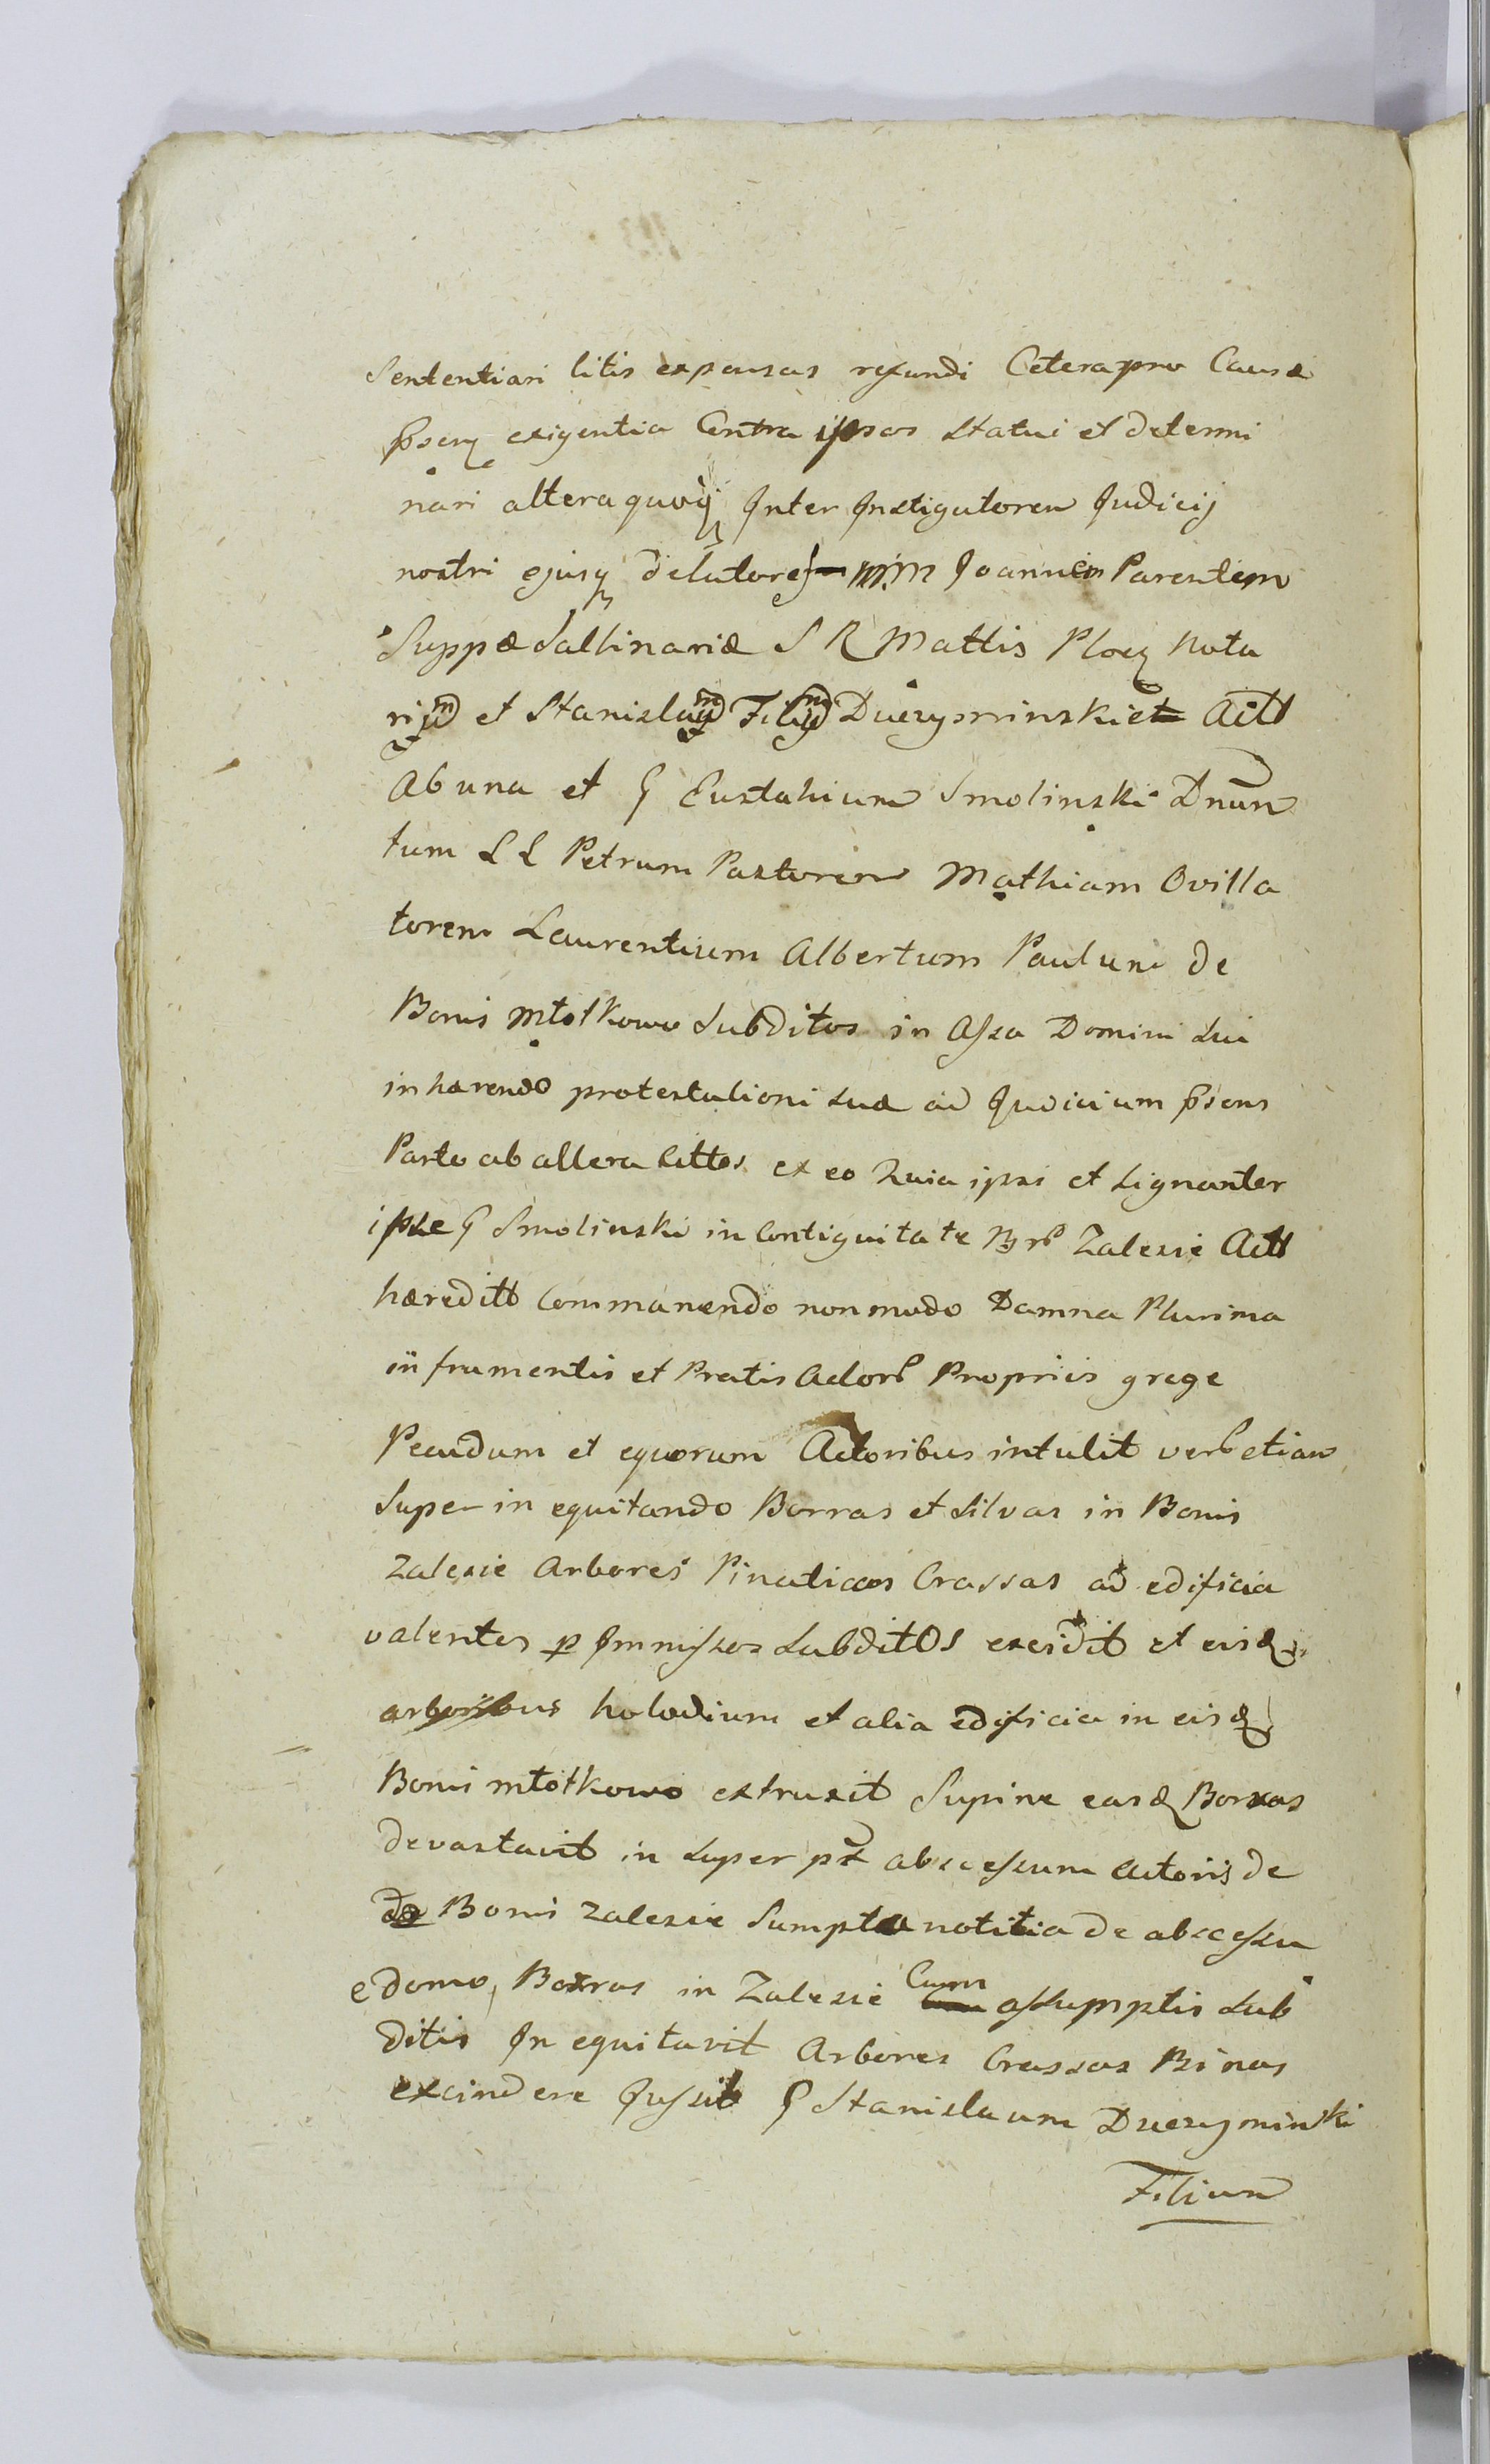 Sententiari litis expensas refundi Cetera pro Causæ
pseng exigentia Contra ipsos statui et determi
nari altera quoq Inter Instigatorem Judicij
nostri ejusq delatores Mm Joannem Parentem
Suppæ Sallinariæ S R Mattis Ploc Nota
rium et Stanislaum Filium Dzierzyminskie Actt
Ab una et G Eustahium Smolinski Dnun
tum L L Petrum Pastorem Mathiam Ovilla
torem Laurentium Albertum Paulum de
Bonis Młotkowo Subditos in Assa Domini Sui
inhærendo protestationi suæ ad Judicium psens
Parte ab altera Cittos ex eo Quia ipsi et signanter
ipse G Smolinski in Contiguitate Brb Zalesie Actt
hæreditt Commanendo non modo Damna Plurima
in frumentis et Pratis Actorb Propriis grege
Pecudum et equorum Actoribus intulit verb etiam
Super in equitando Borras et Silvas in Bonis
Zalesie Arbores Pinaticas Crassas ad edificia
valentes p Immissos Subditos excidit et eisd
arboribus holodium et alia edificia in eisd
Bonis Młotkowo extruxit Supine easd Borras
devastavit in super pt abscessum Actoris de
de Bonis Zalesie Sumpta notitia de abscessu
e domo, Borras in Zalesie Cum assumptis Sub
ditis In equitavit Arbores Crassas Binas
excindere Jussit G Stanislaum Dzierzyminski
Filium